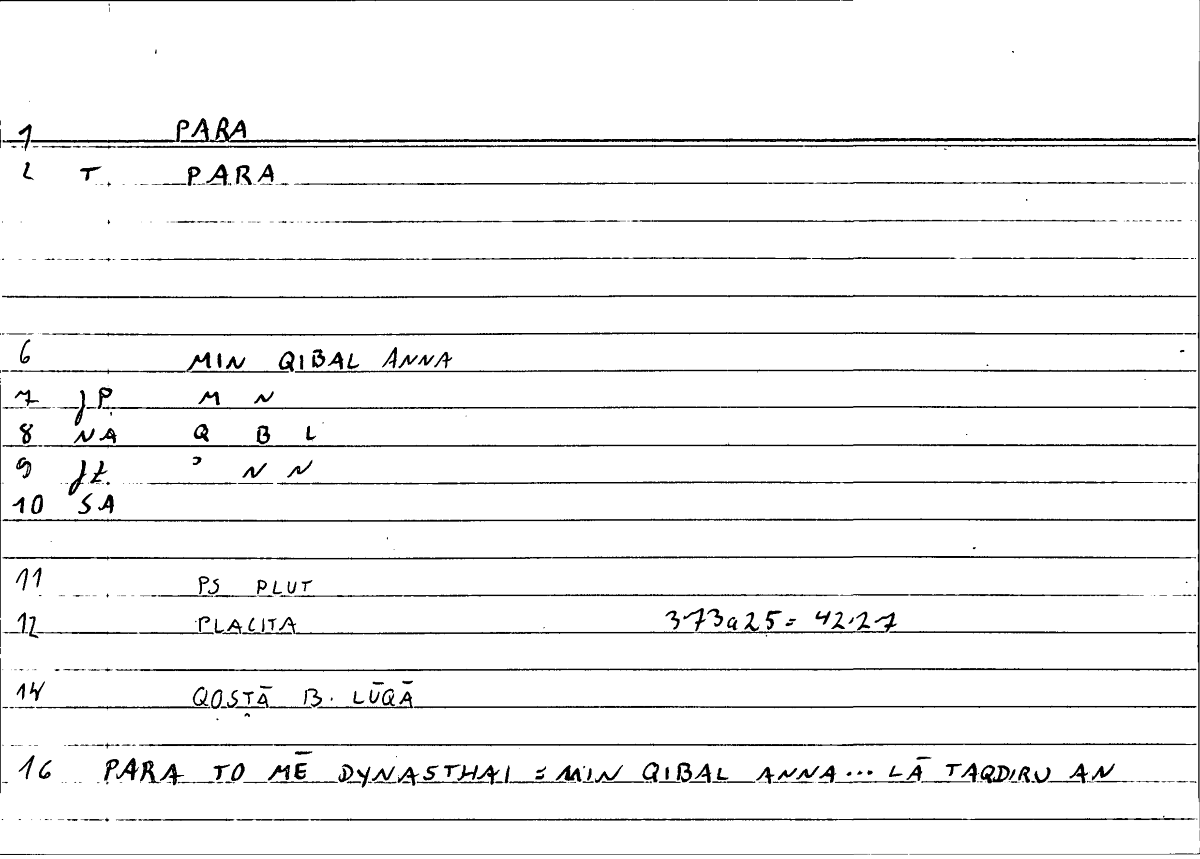 1 PARA
2 T. PARA
6 MIN QIBAL ANNA
7 J.P. M N
8 NA Q B L
9 Jt. ʾ N N
10 SA
11 PS PLUT
12 PLACITA 373a25 = 42.27
14 QOSṬĀ B. LŪQĀ
16 PARA TO MĒ DYNASTHAI = MIN QIBAL ANNA... LĀ TAQDIRU AN